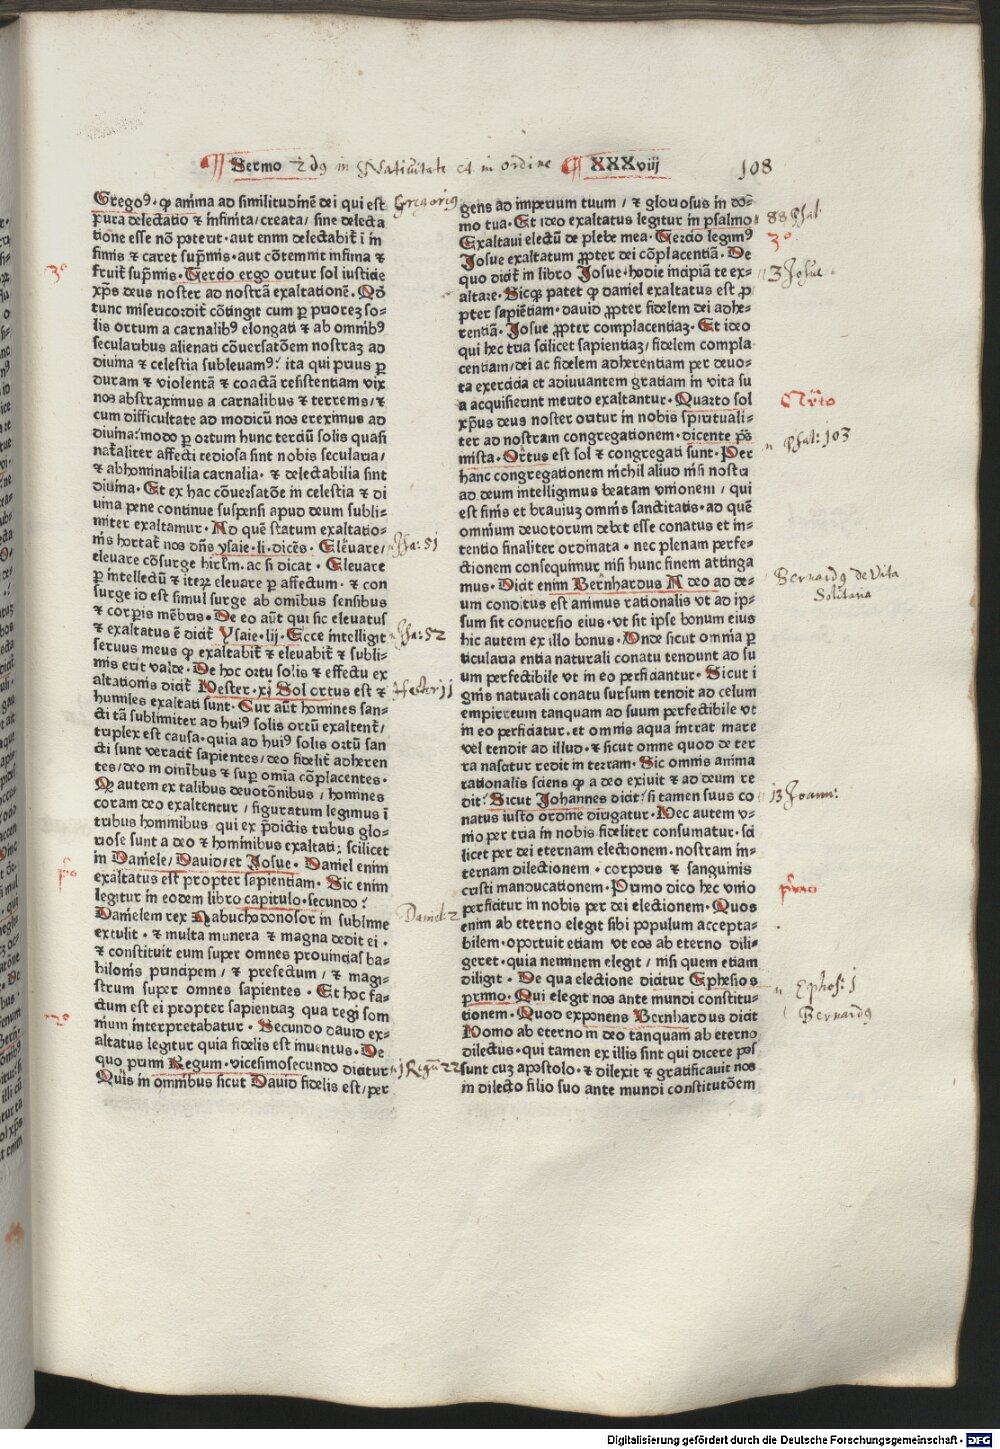 Sermo 2dꝯ in Natiuitate et in ordine XXXviij 108
Gregoꝰ. ꝙ anima ad similitudinē dei qui est
pura delectatio ⁊ infinita/creata/ sine delecta
tione esse nō poterit. aut enim delectabit͛ ī in
fimis ⁊ caret sup̄mis. aut cōtemnit infima ⁊
fruit͛ sup̄mis. Tercio ergo oritur sol iusticie
xp̄s deus noster ad nostrā exaltationē. Qď
tunc misericordit͛ cōtingit cum ꝑ priorez so-
lis ortum a carnalibꝰ elongati ⁊ ab omnibꝰ
secularibus alienati cōuersatōem nostraz ad
diuina ⁊ celestia subleuamꝰ: ita qui prius ꝑ
duram ⁊ violentā ⁊ coactā resistentiam vix
nos abstraximus a carnalibus ⁊ terrenis/⁊
cum difficultate ad modicū nos ereximus ad
diuina: modo ꝑ ortum hunc terciū solis quasi
nat͛aliter affecti tediosa sint nobis secularia/
⁊ abhominabilia carnalia. ⁊ delectabilia sint
diuina. Et ex hac cōuersatōe in celestia ⁊ di
uina pene continue suspensi apud deum subli-
miter exaltamur. Ad quē statum exaltatio-
nis hortat͛ nos dn̄s ysaie. li. dicēs. Eleuare/
eleuare cōsurge hirl̄m. ac si dicat. Eleuare
ꝑ intellectū ⁊ iterꝝ eleuare ꝑ affectum. ⁊ con
surge id est simul surge ab omībus sensibus
⁊ corꝑis mēbris. De eo aūt qui sic eleuatus
⁊ exaltatus ē dicit͛ Ysaie. lij. Ecce intelligit
seruus meus ꝙ exaltabit͛ ⁊ eleuabit͛ ⁊ subli-
mis erit valde. De hoc ortu solis ⁊ effectu ex
altationis dicit͛ Hester. xi Sol ortus est ⁊
humiles exaltati sunt. Cur aūt homines san-
cti tā sublimiter ad huiꝰ solis ortū exaltent͛/
triplex est causa. quia ad huiꝰ solis ortū san
cti sunt veracit͛ sapientes/deo fidelit͛ adheren
tes/deo in oīnibus ⁊ suꝑ omīa cōplacentes.
Qꝙ autem ex talibus deuotōnibus / homines
coram deo exaltentur / figuratum legimus ī
tribus hominibus qui ex p̄dictis tribus glo-
riose sunt a deo ⁊ hominibus exaltati; scilicet
in Daniele/ Dauid/et Josue. Daniel enim
exaltatus est propter sapientiam. Sic enim
legitur in eodem libro capitulo. secundo:
Danielem rex Nabuchodonosor in sublime
extulit. ⁊ multa munera ⁊ magna dedit ei.
⁊ constituit eum super omnes prouincias ba-
bilonis principem / ⁊ prefectum / ⁊ magi-
strum super omnes sapientes. Et hoc fa-
ctum est ei propter sapientiaꝫ qua regi som
nium interpretabatur. Secundo dauid ex-
altatus legitur quia fidelis est inuentus. De
quo primi Regum. vicesimosecundo dicitur
Quis in omnibus sicut Dauid fidelis est/per
Gregoriꝯ
3º
Jsa: 51
Jsa: 52
Hester 11
pº
Daniel: 2
2º
1 Regū 22
gens ad imperium tuum / ⁊ gloriosus in do-
mo tua. Et ideo exaltatus legitur in psalmo
Exaltaui electū de plebe mea. Tercio legimꝰ
Josue exaltatum ꝓpter dei cōplacentiā. De
quo dicit͛ in libro Josue. hodie incipiā te ex-
altare. Sicꝙ patet ꝙ daniel exaltatus est ꝓ
pter sapiētiam. dauid ꝓpter fidelem dei adhe-
rentiā. Josue ꝓpter complacentiaꝫ. Et ideo
qui hec tria scilicet sapientiaꝫ/ fidelem compla
centiam/dei ac fidelem adherentiam per deuo-
ta exercicia et adiuuantem gratiam in vita su
a acquisierint merito exaltantur. Quarto sol
xp̄us deus noster oritur in nobis spirituali-
ter ad nostram congregationem. dicente ps̄
mista. Ortus est sol ⁊ congregati sunt. Per
hanc congregationem nichil aliud nisi nostri
ad deum intelligimus beatam vnionem / qui
est finis et brauiuꝫ omnis sanctitatis. ad quē
omnium deuotorum debet esse conatus et in-
tentio finaliter ordinata. nec plenam perfe-
ctionem consequimur nisi hunc finem attinga
mus. Dicit enim Bernhardus A deo ad de-
um conditus est animus rationalis vt ad ip-
sum sit conuersio eius. vt sit ipse bonum eius
hic autem ex illo bonus. Vnde sicut omnia ꝑ
ticularia entia naturali conatu tendunt ad su
um perfectibile vt in eo perficiantur. Sicut i
gnis naturali conatu sursum tendit ad celum
empirreum tanquam ad suum perfectibile vt
in eo perficiatur. et omnis aqua intrat mare
vel tendit ad illud. ⁊ sicut omne quod de ter
ra nascitur redit in terram. Sic omnis anima
rationalis sciens ꝙ a deo exiuit ⁊ ad deum re
dit: Sicut Johannes dicit: si tamen suus co
natus iusto ordine dirigatur. Hec autem v-
nio per tria in nobis fideliter consumatur. sci
licet per dei eternam electionem. nostram in-
ternam dilectionem. corporis ⁊ sanguinis
cristi manducationem. Primo dico hec vnio
perficitur in nobis per dei electionem. Quos
enim ab eterno elegit sibi populum accepta-
bilem. oportuit etiam vt eos ab eterno dili-
geret. quia neminem elegit / nisi quem etiam
diligit. De qua electione dicitur Ephesios
primo. Qui elegit nos ante mundi constitu-
tionem. Quod exponens Bernhardus dicit
Homo ab eterno in deo tanquam ab eterno
dilectus. qui tamen ex illis sint qui dicere pos
sunt cuꝫ apostolo. ⁊ dilexit ⁊ gratificauit nos
in dilecto filio suo ante mundi constitutōem
88 Psal.
3º
3 Josue
Psal: 103
Bernardꝯ de Vita
Solitaria
13 Joann:
primo
Ephes: 1
Bernardꝯ
Digitalisierung gefördert durch die Deutsche Forschungsgemeinschaft - DFG